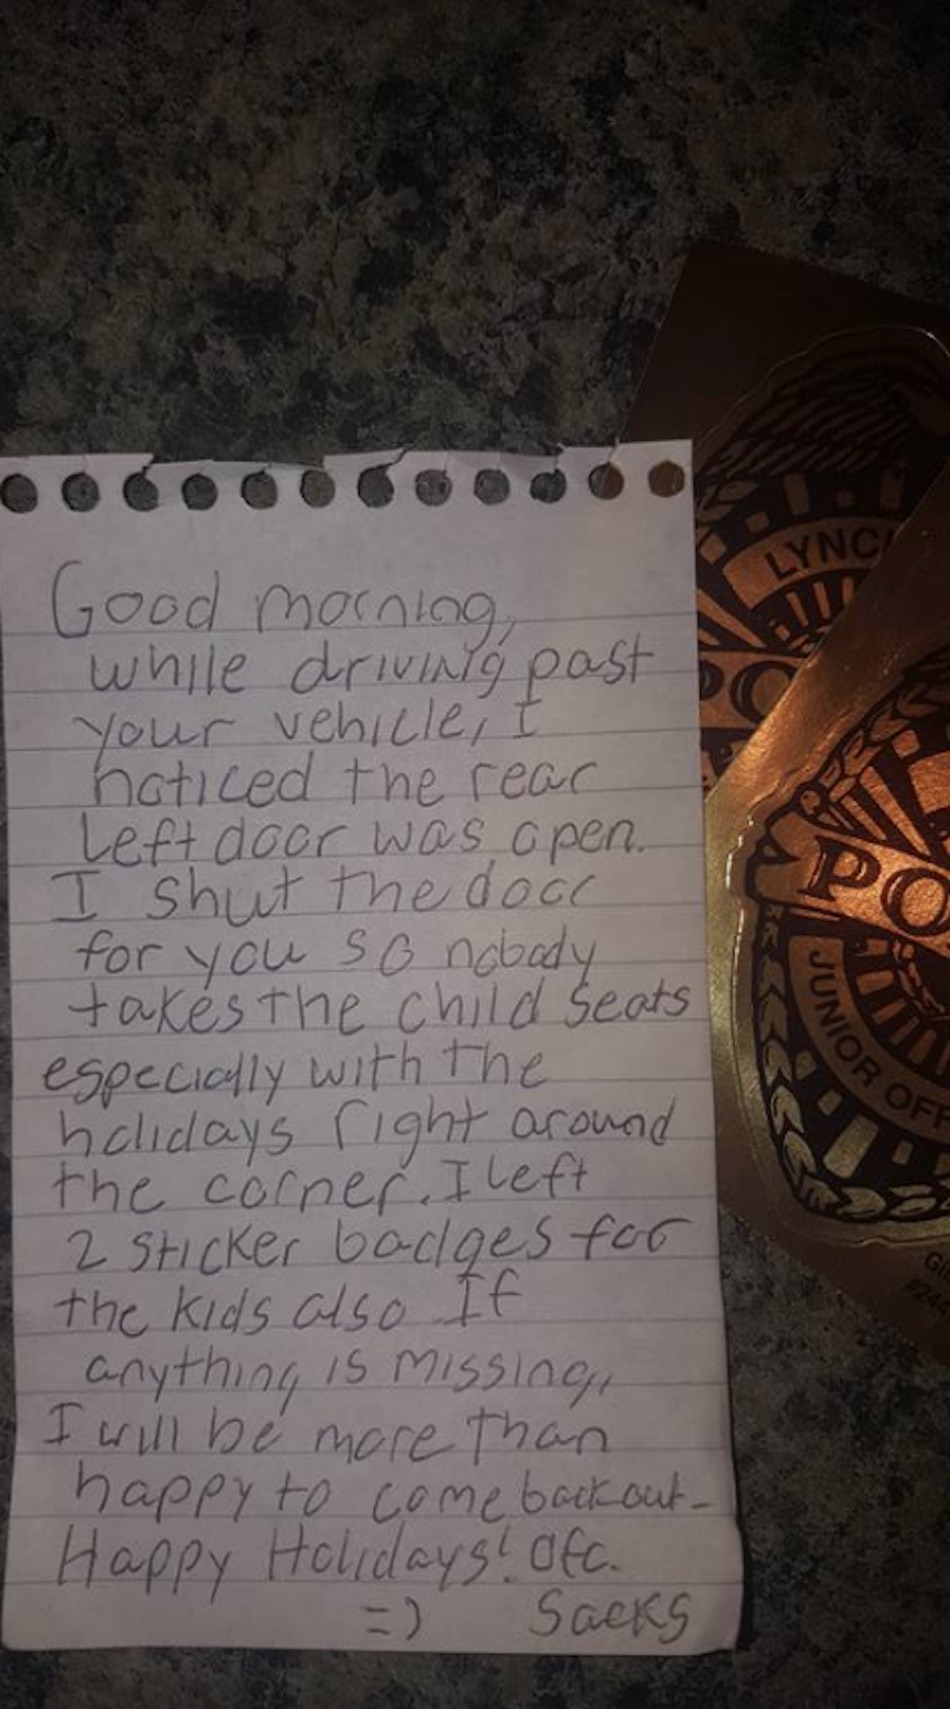 Good morning,
while driving past
your vehicle, I
noticed the rear
Left door was open.
I shut the door
for you so nobody
takes the child seats
especially with the
holidays right around
the corner. I left
2 sticker badges for
the kids also If
anything is missing,
I will be more than
happy to come back out-
Happy Holidays! Ofc.
=) Saeks
LYNC
PO
PO
JUNIOR OFF